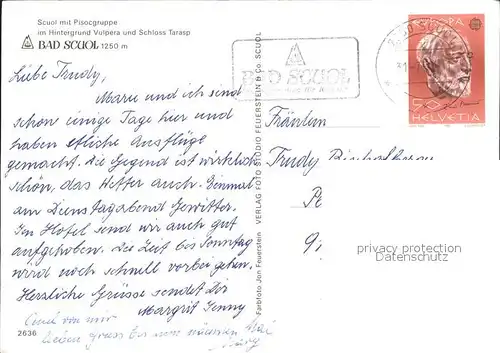 Scuol mit Pisocgruppe
im Hintergrund Vulpera und Schloss Tarasp
BAD SCUOL 1250 m
Liebe Trudy,
Marie und ich sind
schon einige Tage hier und
haben etliche Ausflüge
gemacht. Die Gegend ist wirklich
schön, das Wetter auch. Einmal
am Dienstagabend Gewitter.
Im Hotel sind wir auch gut
aufgehoben. Die Zeit bis Sonntag
wird noch schnell vorbei gehen.
Herzliche Grüsse sendet Dir
Margrit Jenny
Auch von mir
lieben Gruss bis zum nächsten Mai
2636
Farbfoto Jon Feuerstein VERLAG FOTO STUDIO FEUERSTEIN & CO. SCUOL
BAD SCUOL
EUROPA
50
HELVETIA
Fräulein
Trudy
privacy protection
Watermark